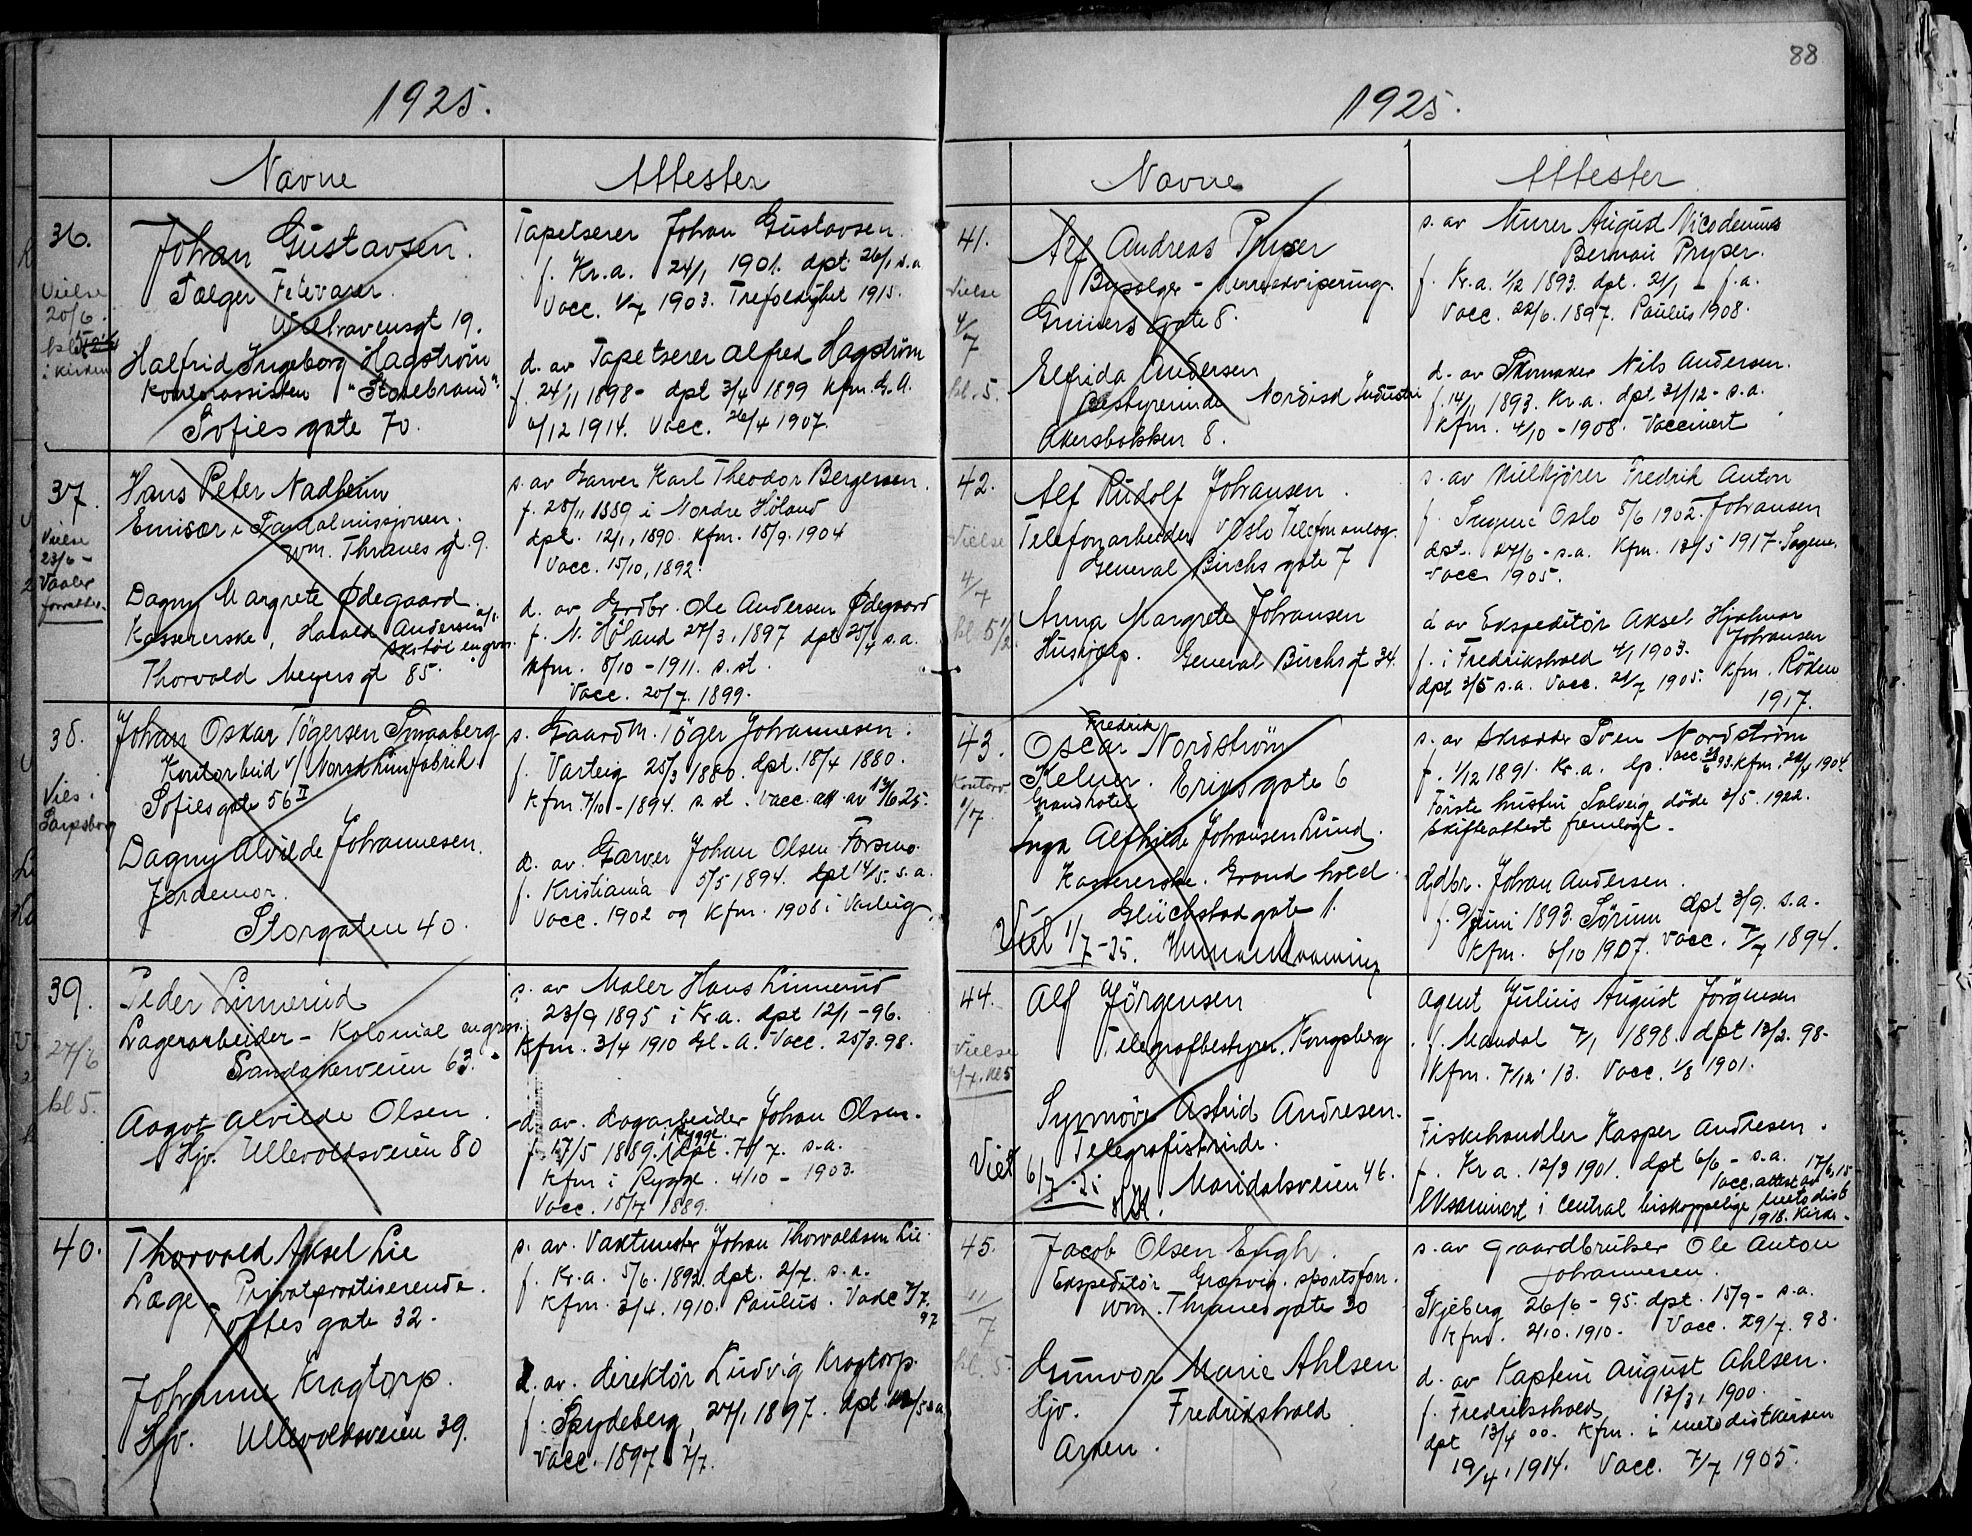 1925.
Navne Attester
36.
Vielse
20/6.
i kirken
Johan Gustavsen.
Selger Fetevarer.
Waltravensgt 19.
Halfrid Ingeborg Hagstrøm
Kontorassistent "Storebrand"
Sofies gate 70.
Tapetserer Johan Gustavsen.
f. Kr.a. 24/1 1901. dpt 26/1 s.a
Vacc. 1/7 1903. Trefoldighet 1915.
d. av Tapetserer Alfred Hagstrøm
f. 24/11 1898 - dpt 3/4 1899 kfm. G.A.
6/12 1914. Vacc. 26/4 1907.
37.
Vielse
23/6 -
Vaaler
forretter.
Hans Peter Nadheim
Emisær i Santalmissjonen.
Wm. Thranes gt. 9.
Dagny Margrete Ødegaard
Kassererske, Harald Andersen
skotøi engros.
Thorvald Meyers gt 85.
s. av Garver Karl Theodor Bergersen.
f. 28/11 1889 i Nordre Høland
dpt. 12/1, 1890. kfm. 18/9. 1904
Vacc. 15/10, 1892.
d. av Grdbr. Ole Andersen Ødegaard
f. N. Høland 27/3. 1897 dpt 25/4 s.a.
kfm. 8/10 - 1911. s.st.
Vacc. 20/7. 1899.
38.
Vies i
Sarpsborg
Johan Oskar Tøgersen Smaaberg
Kontorbud v/ Norsk Limfabrik
Sofiesgate 56 II
Dagny Alvilde Johannesen.
Jordemor.
Storgaten 40.
s. Gaardm. Tøger Johannesen.
f. Varteig 25/3 1880. dpt. 18/4 1880.
kfm 7/10 - 1894. s.st. Vacc. att av 13/6 25.
d. av. Garver Johan Olsen Forsmo.
f. Kristiania 5/5 1894. dpt 14/5. s.a.
Vacc. 1902 og kfm. 1908 i Varteig.
39.
27/6
kl 5.
Peder Linnerud
Lagerarbeider - Kolonial engros.
Sandakerveien 63.
Aagot Alvilde Olsen.
Hjv. Ullevoldsveien 80
s. av Maler Hans Linnerud
23/9 1895 i Kr.a. dpt 12/1 - 96.
kfm. 3/4 1910 Gl.-A. Vacc. 25/3. 98.
d. av. dagarbeider Johan Olsen.
i Rygge.
f. 17/5 1889. dpt. 7/7. s.a.
kfm i Rygge. 4/10 - 1903.
Vacc. 18/7 1889.
40.
Thorvald Aksel Lie
Læge. Privatpraktiserende.
Toftes gate 32.
Johanne Kragtorp.
Hjv. Ullevoldsveien 39.
s. av. Vaktmester Johan Thorvaldsen Lie.
f. Kr.a. 5/6. 1892. dpt. 2/7. s.a.
kfm. 3/4. 1910. Paulus. Vacc 7/7.
97
d. av. direktør Ludvig Kragtorp.
f. Spydeberg, 27/1 1897. dpt
Vacc. 1897 7/7.
88
1925.
Navne Attester
41.
Vielse
4/7
kl. 5.
Alf Andreas Pryser
Byselger - Herreekvipering
Grüners gate 8.
Elfrida Andersen
Bestyrerinde Nordisk Industri
Akersbakken 8.
s. av Murer August Nicodemus
Berman Pryser.
f. Kr.a. 1/2 1893. dpt. 21/1 - f.a.
Vacc. 22/6. 1897. Paulus 1908.
d. av Skomaker Nils Andersen.
f. 14/11 1893. Kr.a. dpt 31/12 - s.a.
kfm. 4/10 - 1908. Vaccinert
42.
Vielse
4/7
kl 5 1/2
Alf Rudolf Johansen.
Telefonarbeider v Oslo Telefonanleg.
General Birchs gate 7
Anna Margrete Johansen
Hushjælp. General Birchs gt 34.
s. av Mælkjører Fredrik Anton
f. Sagene Oslo 5/6 1902. Johansen
dpt. 27/6 - s.a. Kfm. 13/5 1917. Sagene.
Vacc 1905.
d av Ekspeditør Aksel Hjalmar
Johansen
f. i Fredrikshald 4/1 1903.
dpt 3/5 s.a. Vacc. 21/7 1905. kfm. Røken
1917.
43.
Kontoret
1/7
Fredrik
Oscar Nordstrøm
Kelner. Eriksgate 6
Grand hotel
Inga Alfhilde Johansen Lund.
Kassererske. Grand hotel.
Glückstadgate 1.
Viet 1/7 - 25.
s. av Skrædder Sven Nordstrøm
f. 1/12 1891. Kr.a. dp. Vacc 93. kfm. 24/4 1904
Første hustru Solveig døde 2/5. 1922.
Skifteattest fremlagt.
Gdbr. Johan Andersen.
f. 9/juni 1893. Sørum dpt 3/9. s.a.
kfm. 6/10 1907. Vacc. 7/7 1894.
44.
Vielse
6/7. kl 5
Alf Jørgensen
Telegrafbestyrer, Kongsberg
Synnøve Astrid Andresen.
Telegrafistinde.
Maridalsveien 46.
Viet 6/7 - 25
Agent Julius August Jørgensen
f. Mandal 7/1 1898. dpt 13/2. 98.
kfm. 7/12. 13. Vacc. 1/8 1901.
Fiskehandler Kasper Andresen.
f. Kr a. 12/3 1901. dpt 6/6 - s.a.
Vacc. attest av 17/6, 15
Eksaminert i Central biskoppelige metodist
1918. Kirke -
45.
11/7
kl. 5.
Jacob Olsen Engh.
Ekspeditør Græsvig. sportsforr.
Wm. Thranes gate 30
Gunvor Marie Ahlsen
Hjv. Fredrikshald
s. av Gaardbruker Ole Anton
Johannesen.
Skjeberg 26/6 - 95. dpt. 15/9 - s.a.
kfm. 2/10. 1910. Vacc. 29/7. 98.
d. av Kaptein August Ahlsen.
f. Fredrikshald 13/3, 1900.
dpt 13/4 00. Kfm. i metodistkirken
19/4, 1914. Vacc. 7/7 1905.